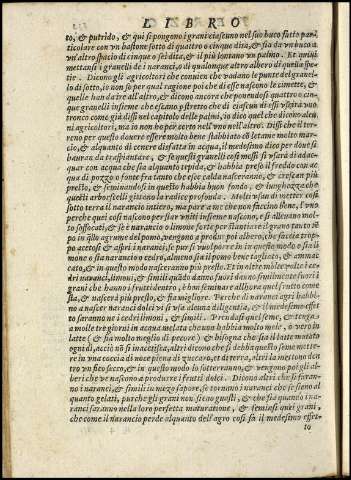 LIBRO
to, & putrido, & qui si pongono i grani ciascuno nel suo buco fatto par-
ticolare con vn bastone sotto di quattro o cinque dita, & sia da vn buco a
vn'altro spatio di cinque o sei dita, & il più lontano vn palmo. Et quiui
mettansi i granelli de i naranci, o di qualunque altro albero di questa spe-
tie. Dicono gli agricoltori che conuien che vadano le punte del granel-
lo di sotto, io non so per qual ragione poi che di esse nascono le cimette, &
quelle han da ire all'alto, & dicono ancora che ponendosi quattro o cin-
que granelli insieme che escano
tronco come già dissi nel capitolo delle palmi, io dico quel che dicono alcu-
ni agricoltori, ma io non ho per certo nell'vno nell'altro. Dissi che il ter-
reno per questo douere essere molto bene stabbiato cō letame molto mar-
cio, & alquanto di cenere disfatta in acqua, il medesimo dico per doue si
hauran da traspiantare, & se questi granelli cosi messi si vsarà di adac-
quar con acqua che sia alquanto tepida, & habbia preso il freddo con ac-
qua di pozzo o fonte fra tanto che è più calda nasceranno, & crescerā più
presto, & seminandosi in questo habbia buon fondo, & lunghezza che
questi arboscelli gittano la radice profonda. Molti vsan di metter così
sotto terra il naranci intero, ma pare a me che non faccino bene, l'vno
perche quei così nascono per star vniti insieme nascono, e si alleuano mol-
to soffocati, & se è narancio o limone forte per stantiare il grano tanto tē
po in q̄llo agrume del pomo, vengono a produr poi alberi, che faccia trop-
po acetosi & aspri i naranci, se pur si vuol porre in questo modo o sia li-
mone o sia narancio o cedro, almeno sia il pomo bene tagliato, & ammac-
cato, & in questo modo nasceranno più presto. Et in oltre molte volte i ce-
dri naranci, limoni, & simili quādo danno fuori danno similmente fuori i
grani che hanno i frutti dentro, & buon seminare allhora quel frutto come
sta, & nascerà più presto, & sia migliore. Parche di naranci agri habbi-
no a nascer naranci dolci vi si vsa alcuna diligentia, & il medesimo effet-
to saranno ne i cedri limoni, & simili. Prendasi quel seme, & tenga-
a molle tre giorni in acqua melata che una habbia molto mele, o vero in
latte (& sia molto meglio di pecore) & bisogna che sia il latte mutato
ogni dì, acciò nō si inacetisca, altri dicono che si debba questo seme mette-
re in vna coccia di noce piena di zuccaro, et di terra, altri la mettono den
tro vn fico secco, & in questo modo lo sotterranno, & vengon poi gli al-
beri che ne nascono a produrre i frutti dolci. Dicono altri che si faran-
no i naranci, & simili in mezzo sapore, se torranno i naranci che sieno al
quanto gelati, purche gli grani non sieno guasti, & che sia quando i na-
ranci saranno nella loro perfetta maturatione, & seminasi quei grani,
che come il narancio perde alquanto dell'agro così fa il medesimo effet-
to